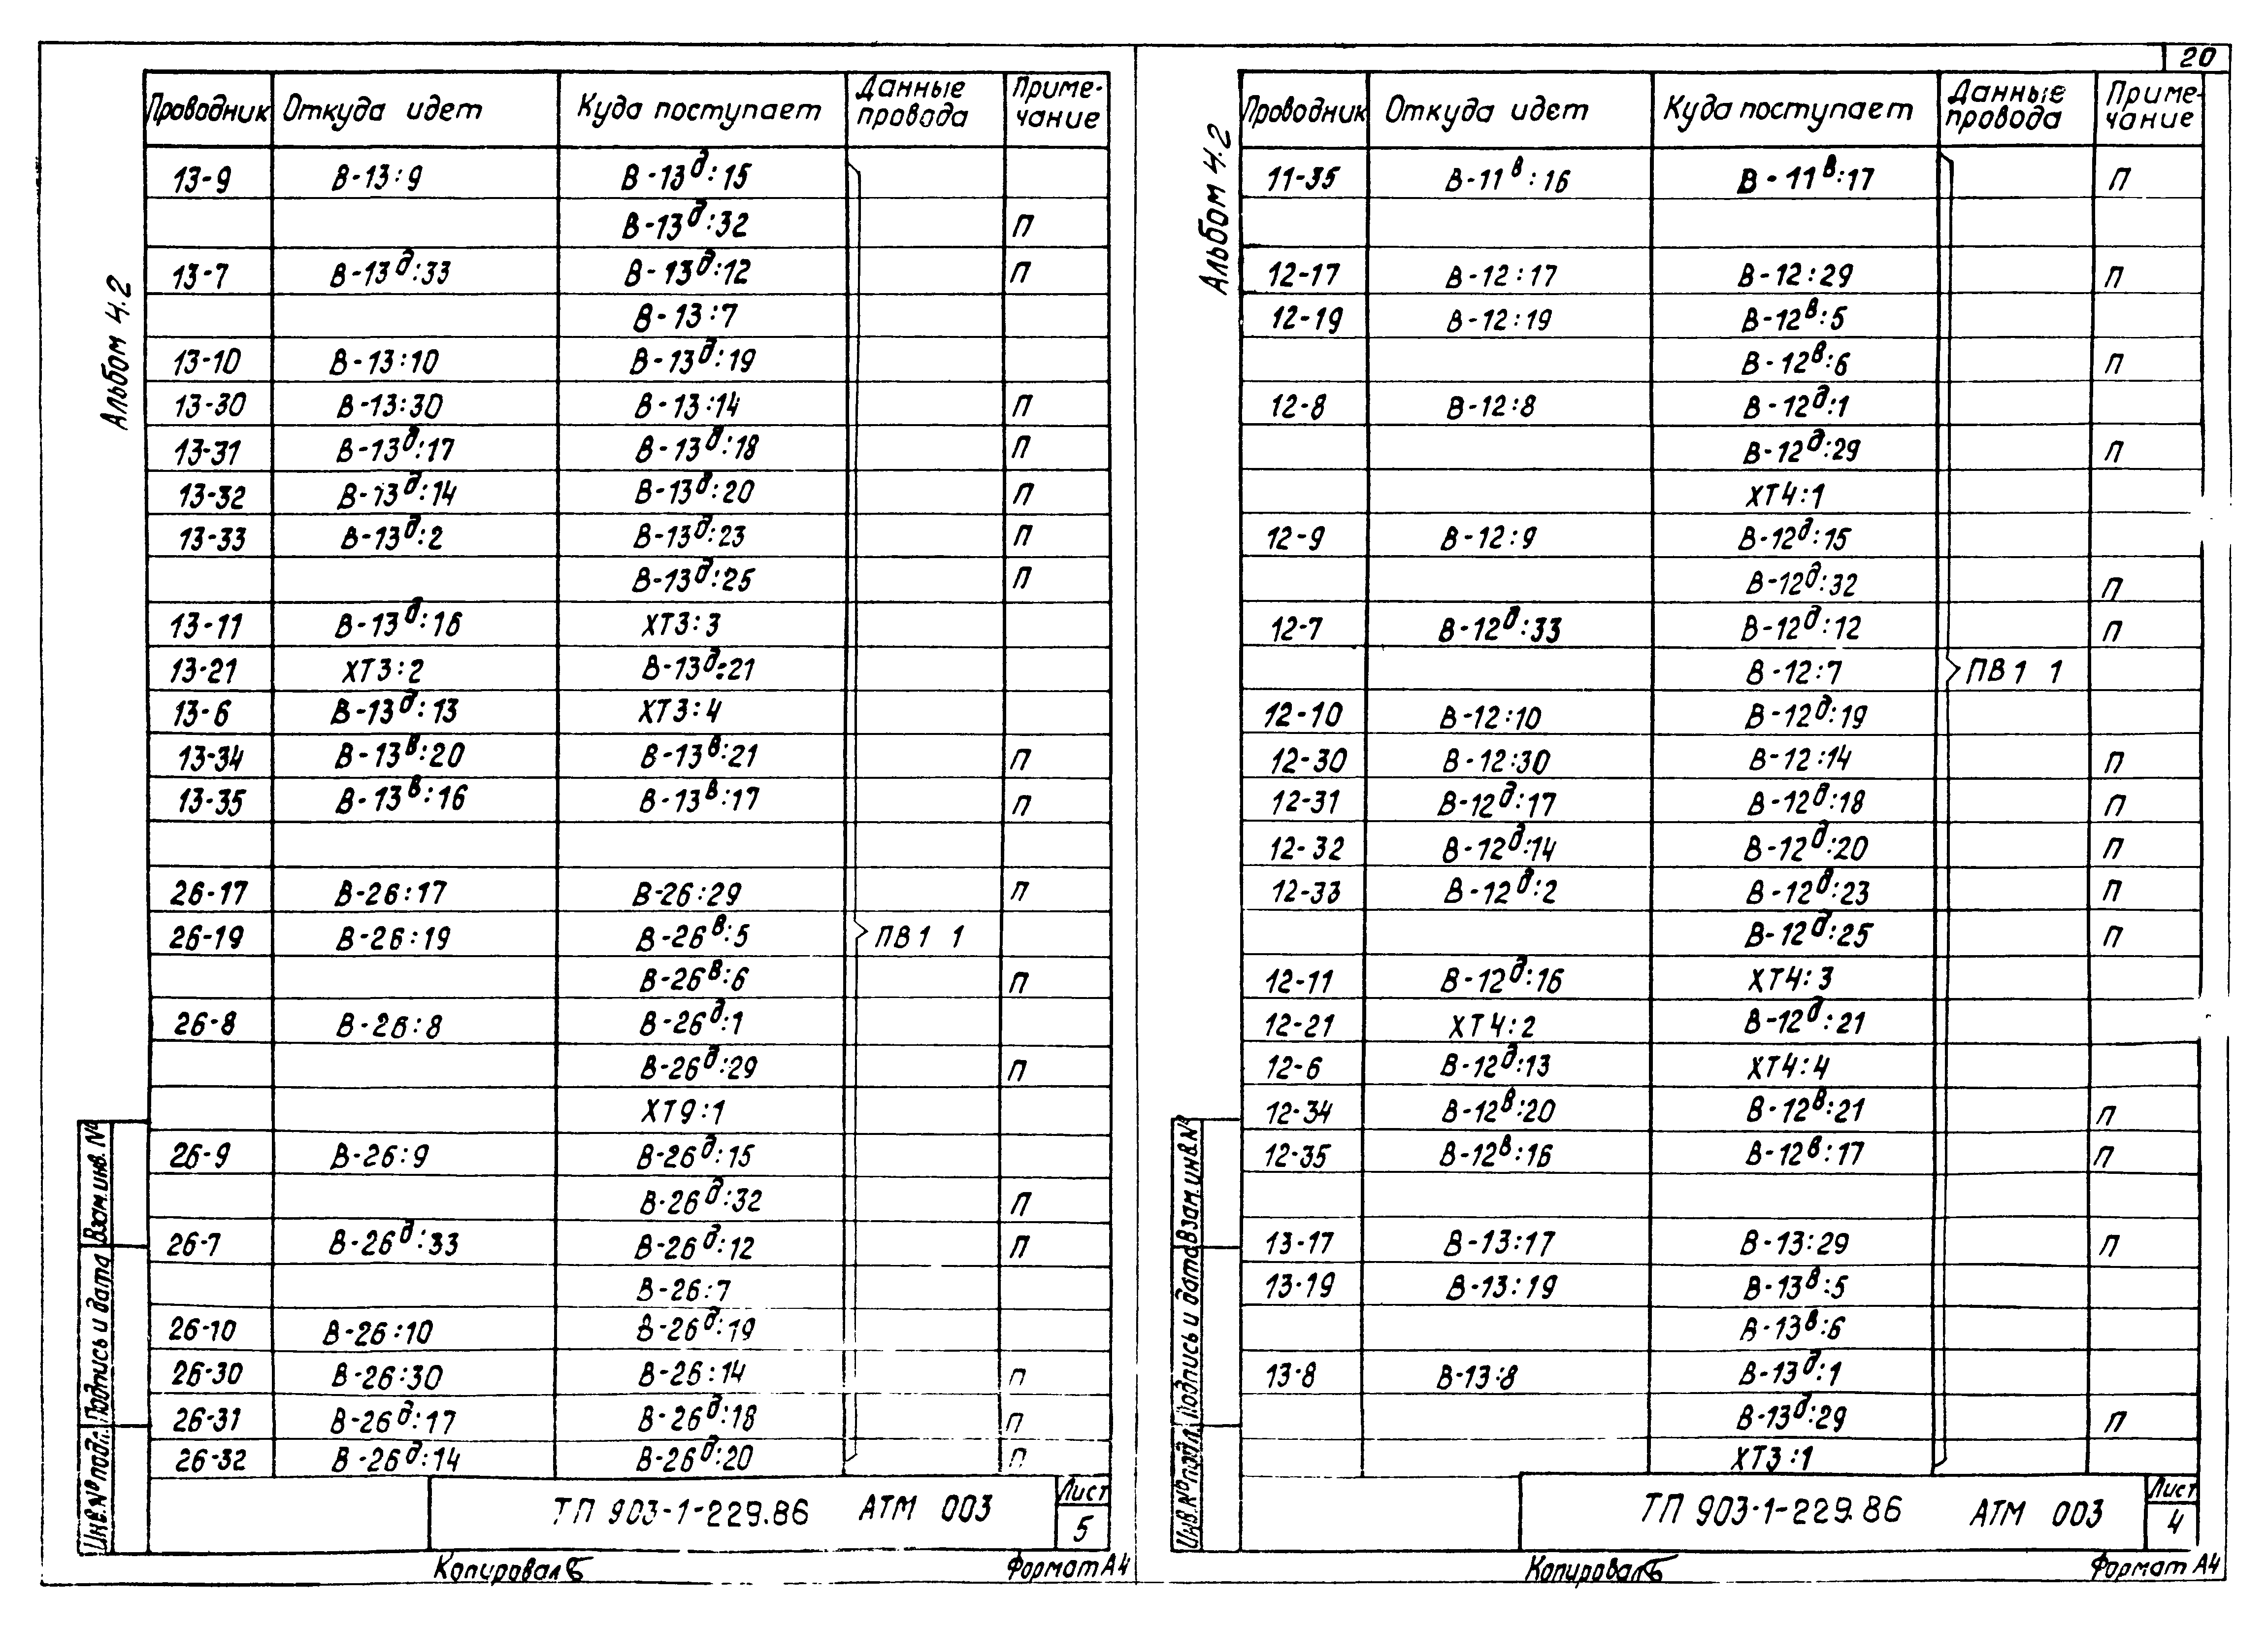 20
Альбом 4.2
Проводник Откуда идет Куда поступает Данные провода Приме-чание
13-9 В-13:9 В-13д:15
В-13д:32 П
13-7 В-13д:33 В-13д:12 П
В-13:7
13-10 В-13:10 В-13д:19
13-30 В-13:30 В-13:14 П
13-31 В-13д:17 В-13д:18 П
13-32 В-13д:14 В-13д:20 П
13-33 В-13д:2 В-13д:23 П
В-13д:25 П
13-11 В-13д:16 ХТ3:3
13-21 ХТ3:2 В-13д:21
13-6 В-13д:13 ХТ3:4
13-34 В-13в:20 В-13в:21 П
13-35 В-13в:16 В-13в:17 П
26-17 В-26:17 В-26:29 П
26-19 В-26:19 В-26в:5 ПВ1 1
В-26в:6 П
26-8 В-26:8 В-26д:1
В-26д:29 П
ХТ9:1
26-9 В-26:9 В-26д:15
В-26д:32 П
26-7 В-26д:33 В-26д:12 П
В-26:7
26-10 В-26:10 В-26д:19
26-30 В-26:30 В-26:14 П
26-31 В-26д:17 В-26д:18 П
26-32 В-26д:14 В-26д:20 П
Инв.№ подл. Подпись и дата Взам.инв.№
ТП 903-1-229.86 АТМ 003
Лист
5
Копировал
Формат А4
Альбом 4.2
Проводник Откуда идет Куда поступает Данные провода Приме-чание
11-35 В-11в:16 В-11в:17 П
12-17 В-12:17 В-12:29 П
12-19 В-12:19 В-12в:5
В-12в:6 П
12-8 В-12:8 В-12д:1
В-12д:29 П
ХТ4:1
12-9 В-12:9 В-12д:15
В-12д:32 П
12-7 В-12д:33 В-12д:12 П
В-12:7 ПВ1 1
12-10 В-12:10 В-12д:19
12-30 В-12:30 В-12:14 П
12-31 В-12д:17 В-12д:18 П
12-32 В-12д:14 В-12д:20 П
12-33 В-12д:2 В-12д:23 П
В-12д:25 П
12-11 В-12д:16 ХТ4:3
12-21 ХТ4:2 В-12д:21
12-6 В-12д:13 ХТ4:4
12-34 В-12в:20 В-12в:21 П
12-35 В-12в:16 В-12в:17 П
13-17 В-13:17 В-13:29 П
13-19 В-13:19 В-13в:5
В-13в:6
13-8 В-13:8 В-13д:1
В-13д:29 П
ХТ3:1
Инв.№ подл. Подпись и дата Взам.инв.№
ТП 903-1-229.86 АТМ 003
Лист
4
Копировал
Формат А4